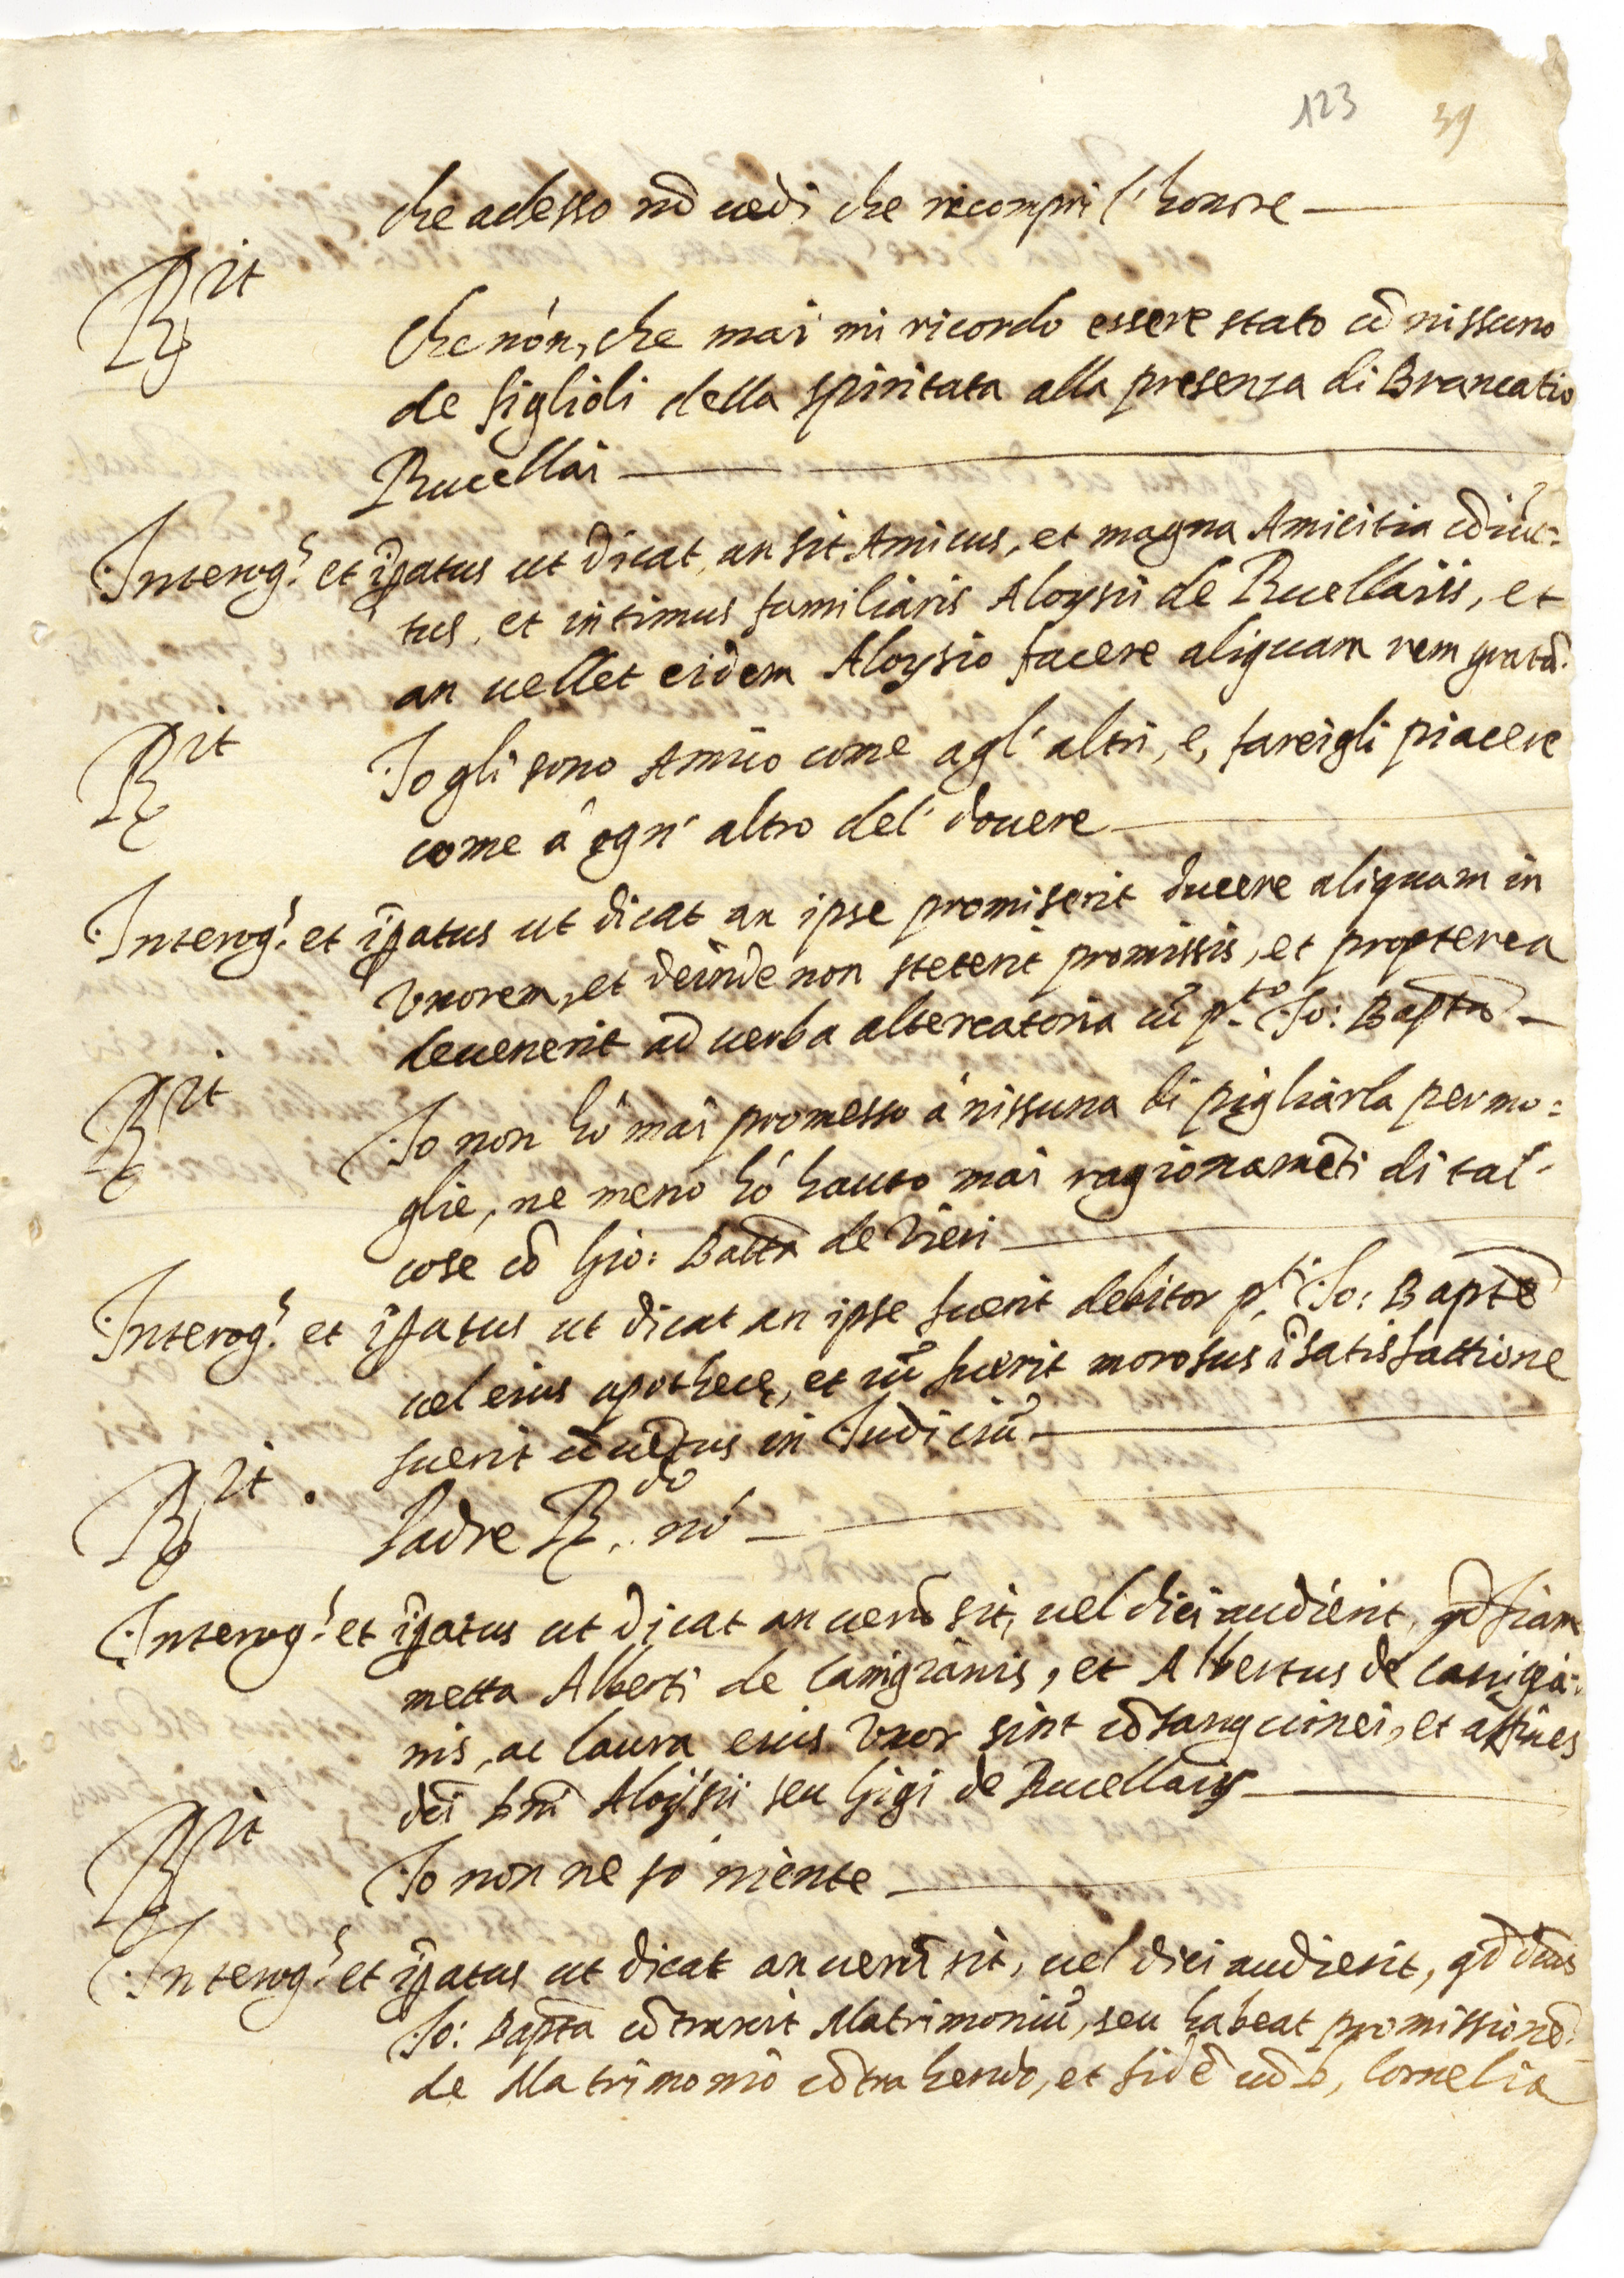 123 39
che adesso nõ uedi che ricompri l'honore
Rit
Che nón, che mai mi ricordo essere stato cõ nissuno
de figlioli della spiritata alla presenza di Brancatio
Rucellai
Interog.s et ip̃atus ut dicat, an sit Amicus, et magna Amicitia cõiũc=
tus, et intimus familiaris Aloysii de Rucellaiis, et
an uellet eidem Aloysio facere aliquam rem gratã.
Rit Io gli sono Amico come agl'altri, e, fareigli piacere
come á ogn' altro del' douere
Interog.s et ip̃atus ut dicat an ipse promiserit ducere aliquam in
Vxorem, et deinde non steterit promissis, et propterea
deuenerit ad uerba altercatoria cũ p.to Io: Bapta
Rit Io non hó mai promesso á nissuna di pigliarla per mo=
glie, ne meno hó hauto mai ragionamẽti di tal'
cose cõ Gio: Batta de Vieri
Interog.s et ip̃atus ut dicat an ipse fuerit debitor p.ti Io: Bapte
uel eius apothecę, et cũ fuerit morosus ĩ satisfattione
fuerit cõuẽtus in Iudiciũ
Rit. Padre R.do nó
Interog.s et ip̃atus ut dicat an uerũ sit, uel dici audierit, qd̃ Fiam
metta Alberti de Canigianis, et Albertus de Canigia=
nis, ac Laura eius Vxor sint cõsanguinei, et affines
dc̃i Aloysii seu Gigi de Rucellaijs
Rit Io non ne so niente
Interog.s et ip̃atus ut dicat an uerũ sit, uel dici audierit, qd̃ dc̃us
Io: Bapta cõtraxerit Matrimoniũ, seu habeat promissionẽ
de Matrimonio cõtrahendo, et fidẽ cũ D. Cornelia